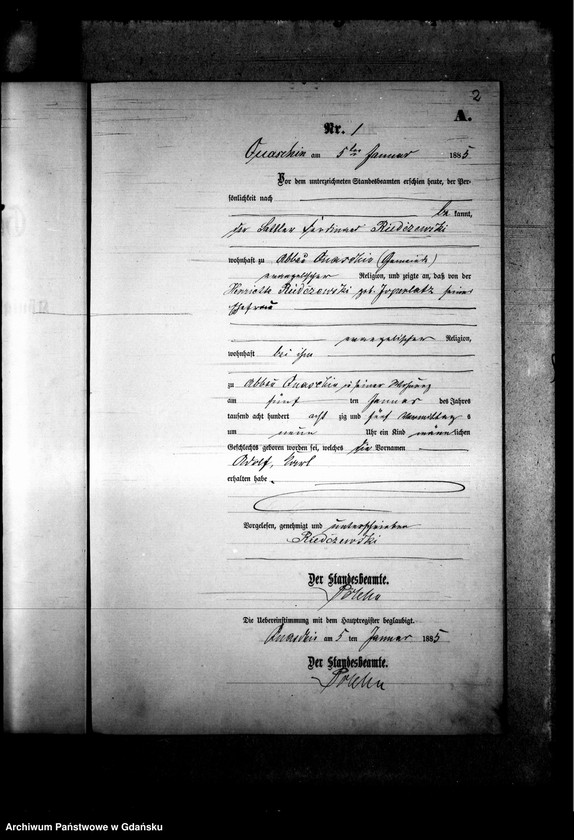 2
A.
Nr. 1
Quaschin am 5ten Januar 1885
Vor dem unterzeichneten Standesbeamten erschien heute, der Per-
sönlichkeit nach
be kannt,
der Ferdinand Rudczewski
wohnhaft zu Abbau Quaschin (Gemeinde)
evangelischer Religion, und zeigte an, daß von der
Henriette Rudczewski geb. seiner
Ehefrau
evangelischer Religion,
wohnhaft bei ihm
zu Abbau Quaschin in seiner Wohnung
am fünf ten Januar des Jahres
tausend acht hundert acht zig und fünf Vormittag s
um neun Uhr ein Kind männ lichen
Geschlechts geboren worden sei, welches die Vornamen
Adolf, Karl
erhalten habe.
Vorgelesen, genehmigt und unterschrieben
Rudczewski
Der Standesbeamte.
Die Uebereinstimmung mit dem Hauptregister beglaubigt.
Quaschin am 5 ten Januar 1885
Der Standesbeamte.
Archiwum Państwowe w Gdańsku